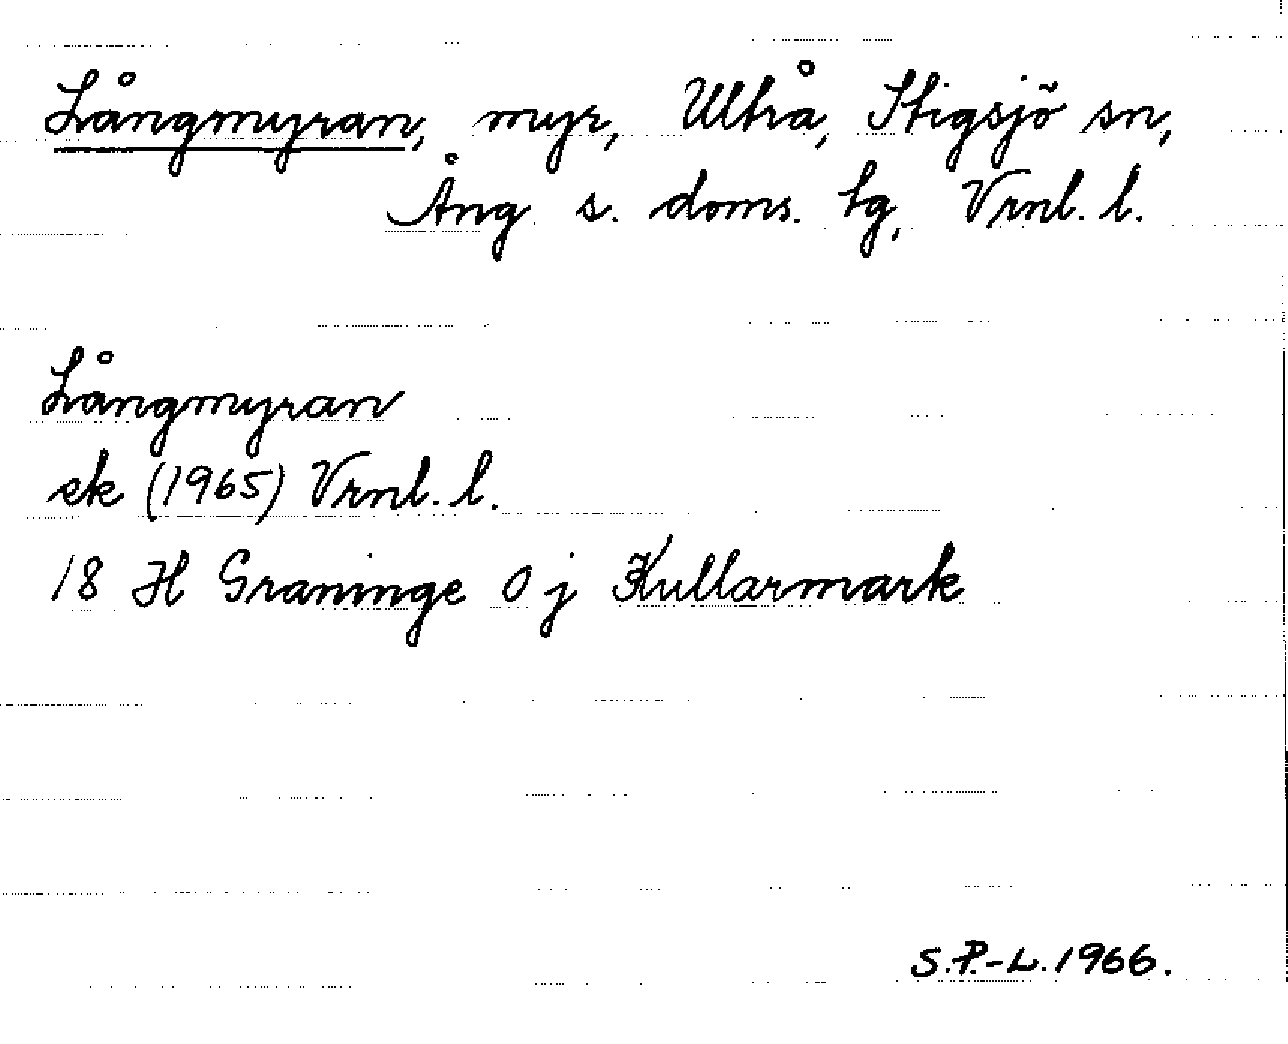 Långmyran, myr, Ultrå, Stigsjö sn,
Ång s. doms. tg, Vrnl. l.
Långmyran
ek (1965) Vrnl. l.
18 H Graninge 0 j Kullarmark
S.P.-L. 1966.